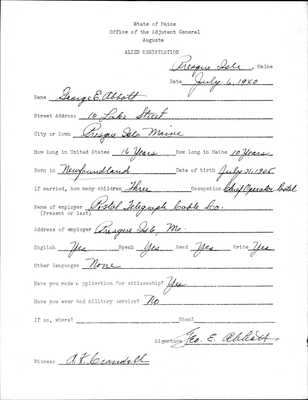 State of Maine
Office of the Adjutant General
Augusta
ALIEN REGISTRATION
Presque Isle, Maine
Date July 6, 1940
Name George E. Abbott
Street Address: 16 Lake Street
City or Town Presque Isle Maine
How long in United States 16 Years How long in Maine 10 Years
Born in Newfoundland Date of birth July 31, 1905
If married, how many children Three Occupation Chief Operator Postal
Name of employer Postal Telegraph Cable Co.
(Present or last)
Address of employer Presque Isle, Me.
English Yes Speak Yes Read Yes Write Yes
Other languages None
Have you made application for citizenship? Yes
Have you ever had military service? No
If so, where? When?
Signature Geo. E. Abbott
Witness: A.F. Crandall